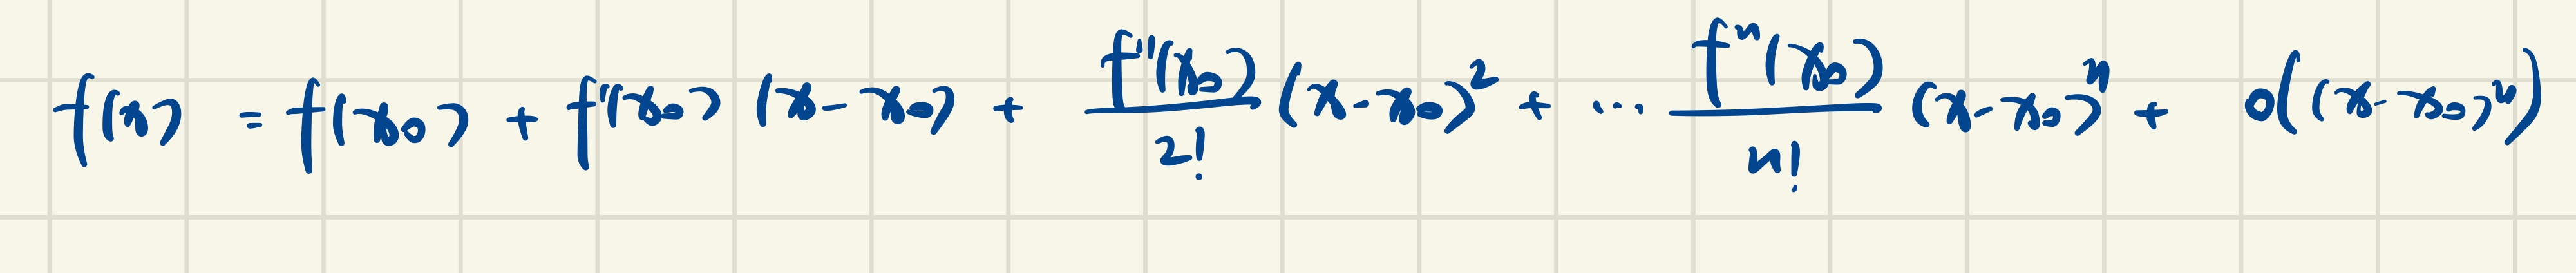 f(x) = f(x₀) + f'(x₀) (x - x₀) + \frac{f''(x₀)}{2!} (x - x₀)² + ... \frac{fⁿ(x₀)}{n!} (x - x₀)ⁿ + o((x - x₀)ⁿ)